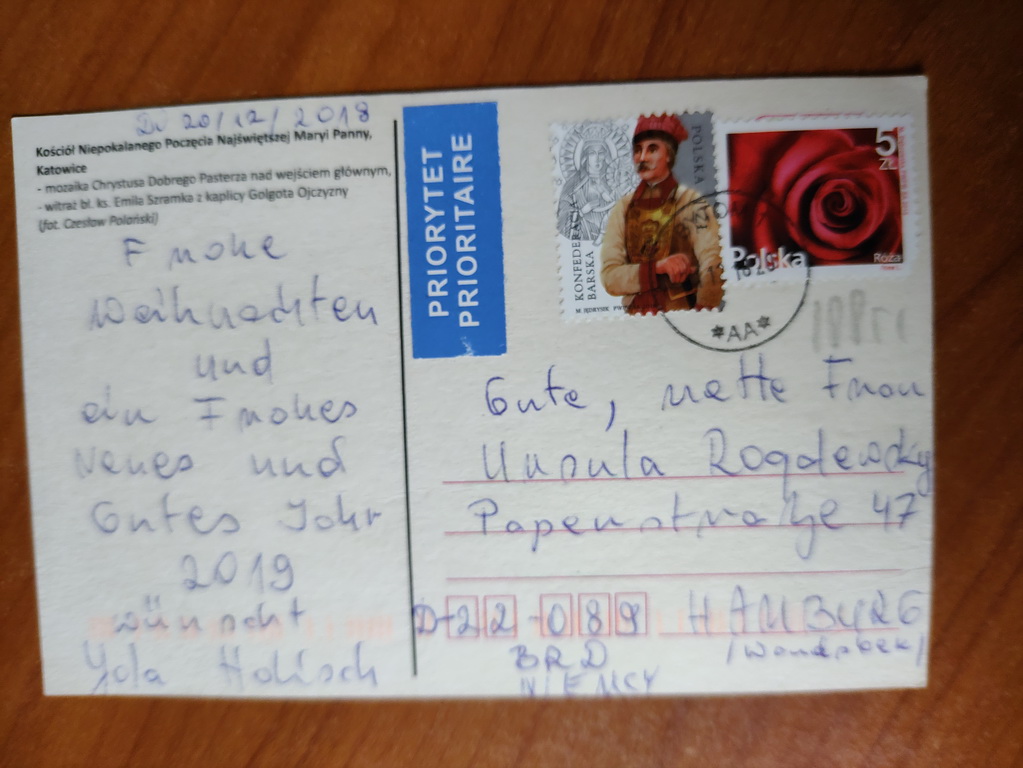 Di 20/12/2018
Kościół Niepokalanego Poczęcia Najświętszej Maryi Panny,
Katowice
- mozaika Chrystusa Dobrego Pasterza nad wejściem głównym,
- witraż bł. ks. Emila Szramka z kaplicy Golgota Ojczyzny
(fot. Czesław Polański)
Frohe
Weihnachten
und
ein Frohes
Neues und
Gutes Jahr
2019
wünscht
Yola Holisch
PRIORYTET
PRIORITAIRE
KONFEDERACJA
BARSKA
POLSKA
5
ZŁ
Polska
Róża
*AA*
Gute, nette Frau
Ursula Rogalewsky
Papenstraße 47
D-22-089 HAMBURG
BRD /Wandsbek/
NIEMCY